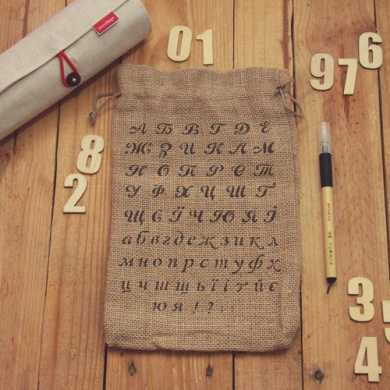 0 1
9 7 6
8
2
А Б В Г Д Е
Ж З И К Л М
Н О П Р С Т
У Ф Х Ц Ш Г
Щ Є Ї Ч Ю Я І
а б в г д е ж з и к л
м н о п р с т у ф х
ц ч ш щ ь ї і ґ й є
ю я ! ? : :
3
4